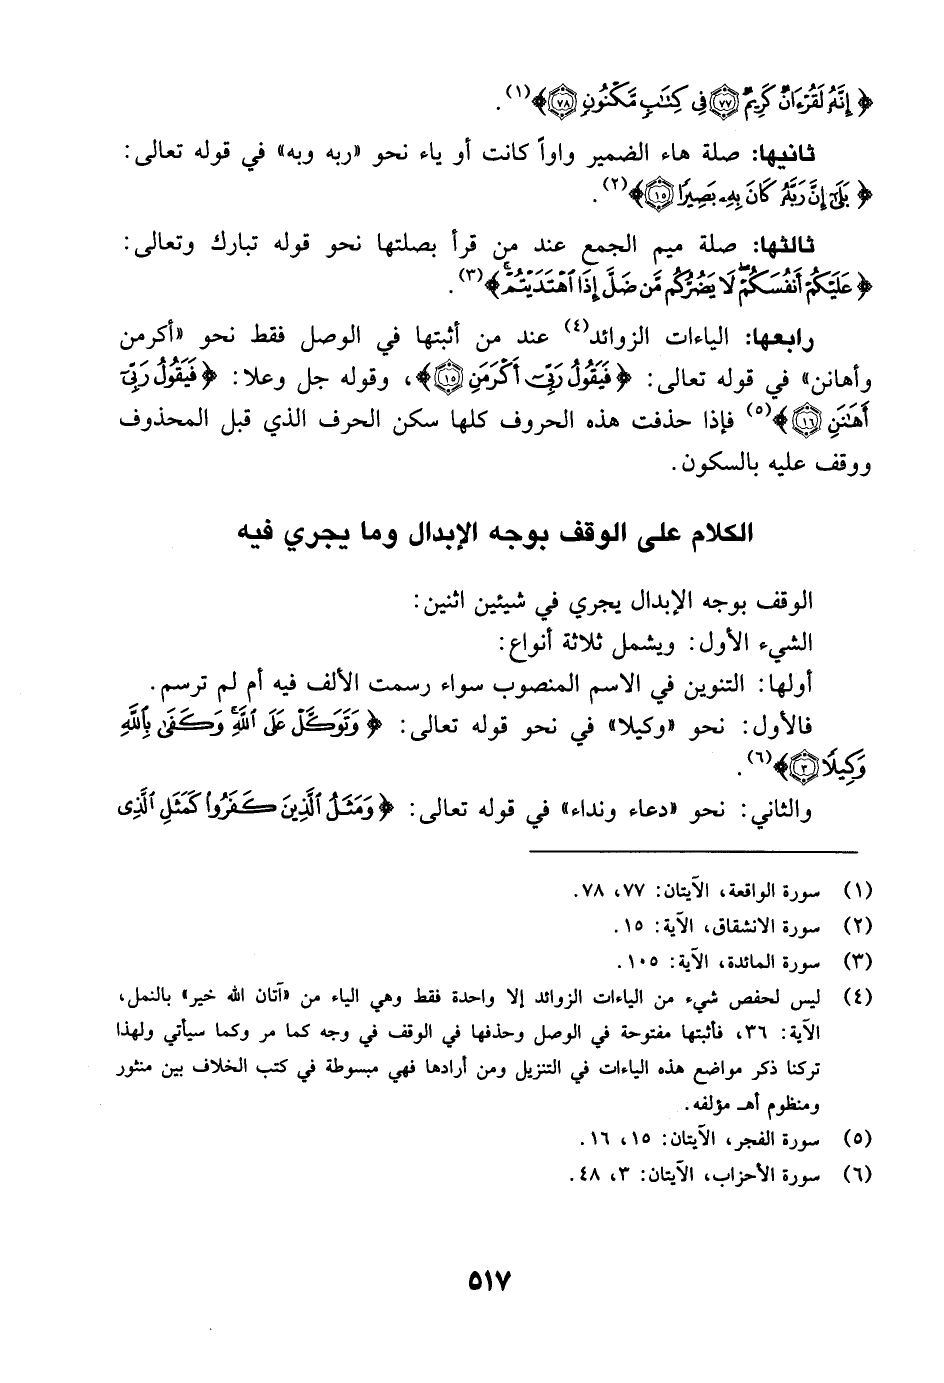 ﴿ إِنَّهُۥ لَقُرْءَانٌ كَرِيمٌ ﴿٧٧﴾ فِى كِتَٰبٍ مَّكْنُونٍ ﴿٧٨﴾﴾(١).
ثانيها: صلة هاء الضمير واواً كانت أو ياء نحو «ربه وبه» في قوله تعالى:
﴿ بَلَىٰٓ إِنَّ رَبَّهُۥ كَانَ بِهِۦ بَصِيرًا ﴿١٥﴾﴾(٢).
ثالثها: صلة ميم الجمع عند من قرأ بصلتها نحو قوله تبارك وتعالى:
﴿ عَلَيْكُمْ أَنفُسَكُمْ ۖ لَا يَضُرُّكُم مَّن ضَلَّ إِذَا ٱهْتَدَيْتُمْ ۚ ﴾(٣).
رابعها: الياءات الزوائد(٤) عند من أثبتها في الوصل فقط نحو «أكرمن
وأهانن» في قوله تعالى: ﴿ فَيَقُولُ رَبِّىٓ أَكْرَمَنِ ﴿١٥﴾﴾، وقوله جل وعلا: ﴿ فَيَقُولُ رَبِّىٓ
أَهَٰنَنِ ﴿١٦﴾﴾(٥) فإذا حذفت هذه الحروف كلها سكن الحرف الذي قبل المحذوف
ووقف عليه بالسكون.
الكلام على الوقف بوجه الإبدال وما يجري فيه
الوقف بوجه الإبدال يجري في شيئين اثنين:
الشيء الأول: ويشمل ثلاثة أنواع:
أولها: التنوين في الاسم المنصوب سواء رسمت الألف فيه أم لم ترسم.
فالأول: نحو «وكيلا» في نحو قوله تعالى: ﴿ وَتَوَكَّلْ عَلَى ٱللَّهِ ۚ وَكَفَىٰ بِٱللَّهِ
وَكِيلًا ﴿٣﴾﴾(٦).
والثاني: نحو «دعاء ونداء» في قوله تعالى: ﴿ وَمَثَلُ ٱلَّذِينَ كَفَرُوا۟ كَمَثَلِ ٱلَّذِى
(١) سورة الواقعة، الآيتان: ٧٧، ٧٨.
(٢) سورة الانشقاق، الآية: ١٥.
(٣) سورة المائدة، الآية: ١٠٥.
(٤) ليس لحفص شيء من الياءات الزوائد إلا واحدة فقط وهي الياء من «آتان الله خير» بالنمل،
الآية: ٣٦، فأثبتها مفتوحة في الوصل وحذفها في الوقف في وجه كما مر وكما سيأتي ولهذا
تركنا ذكر مواضع هذه الياءات في التنزيل ومن أرادها فهي مبسوطة في كتب الخلاف بين منثور
ومنظوم أهـ مؤلفه.
(٥) سورة الفجر، الآيتان: ١٥، ١٦.
(٦) سورة الأحزاب، الآيتان: ٣، ٤٨.
٥١٧